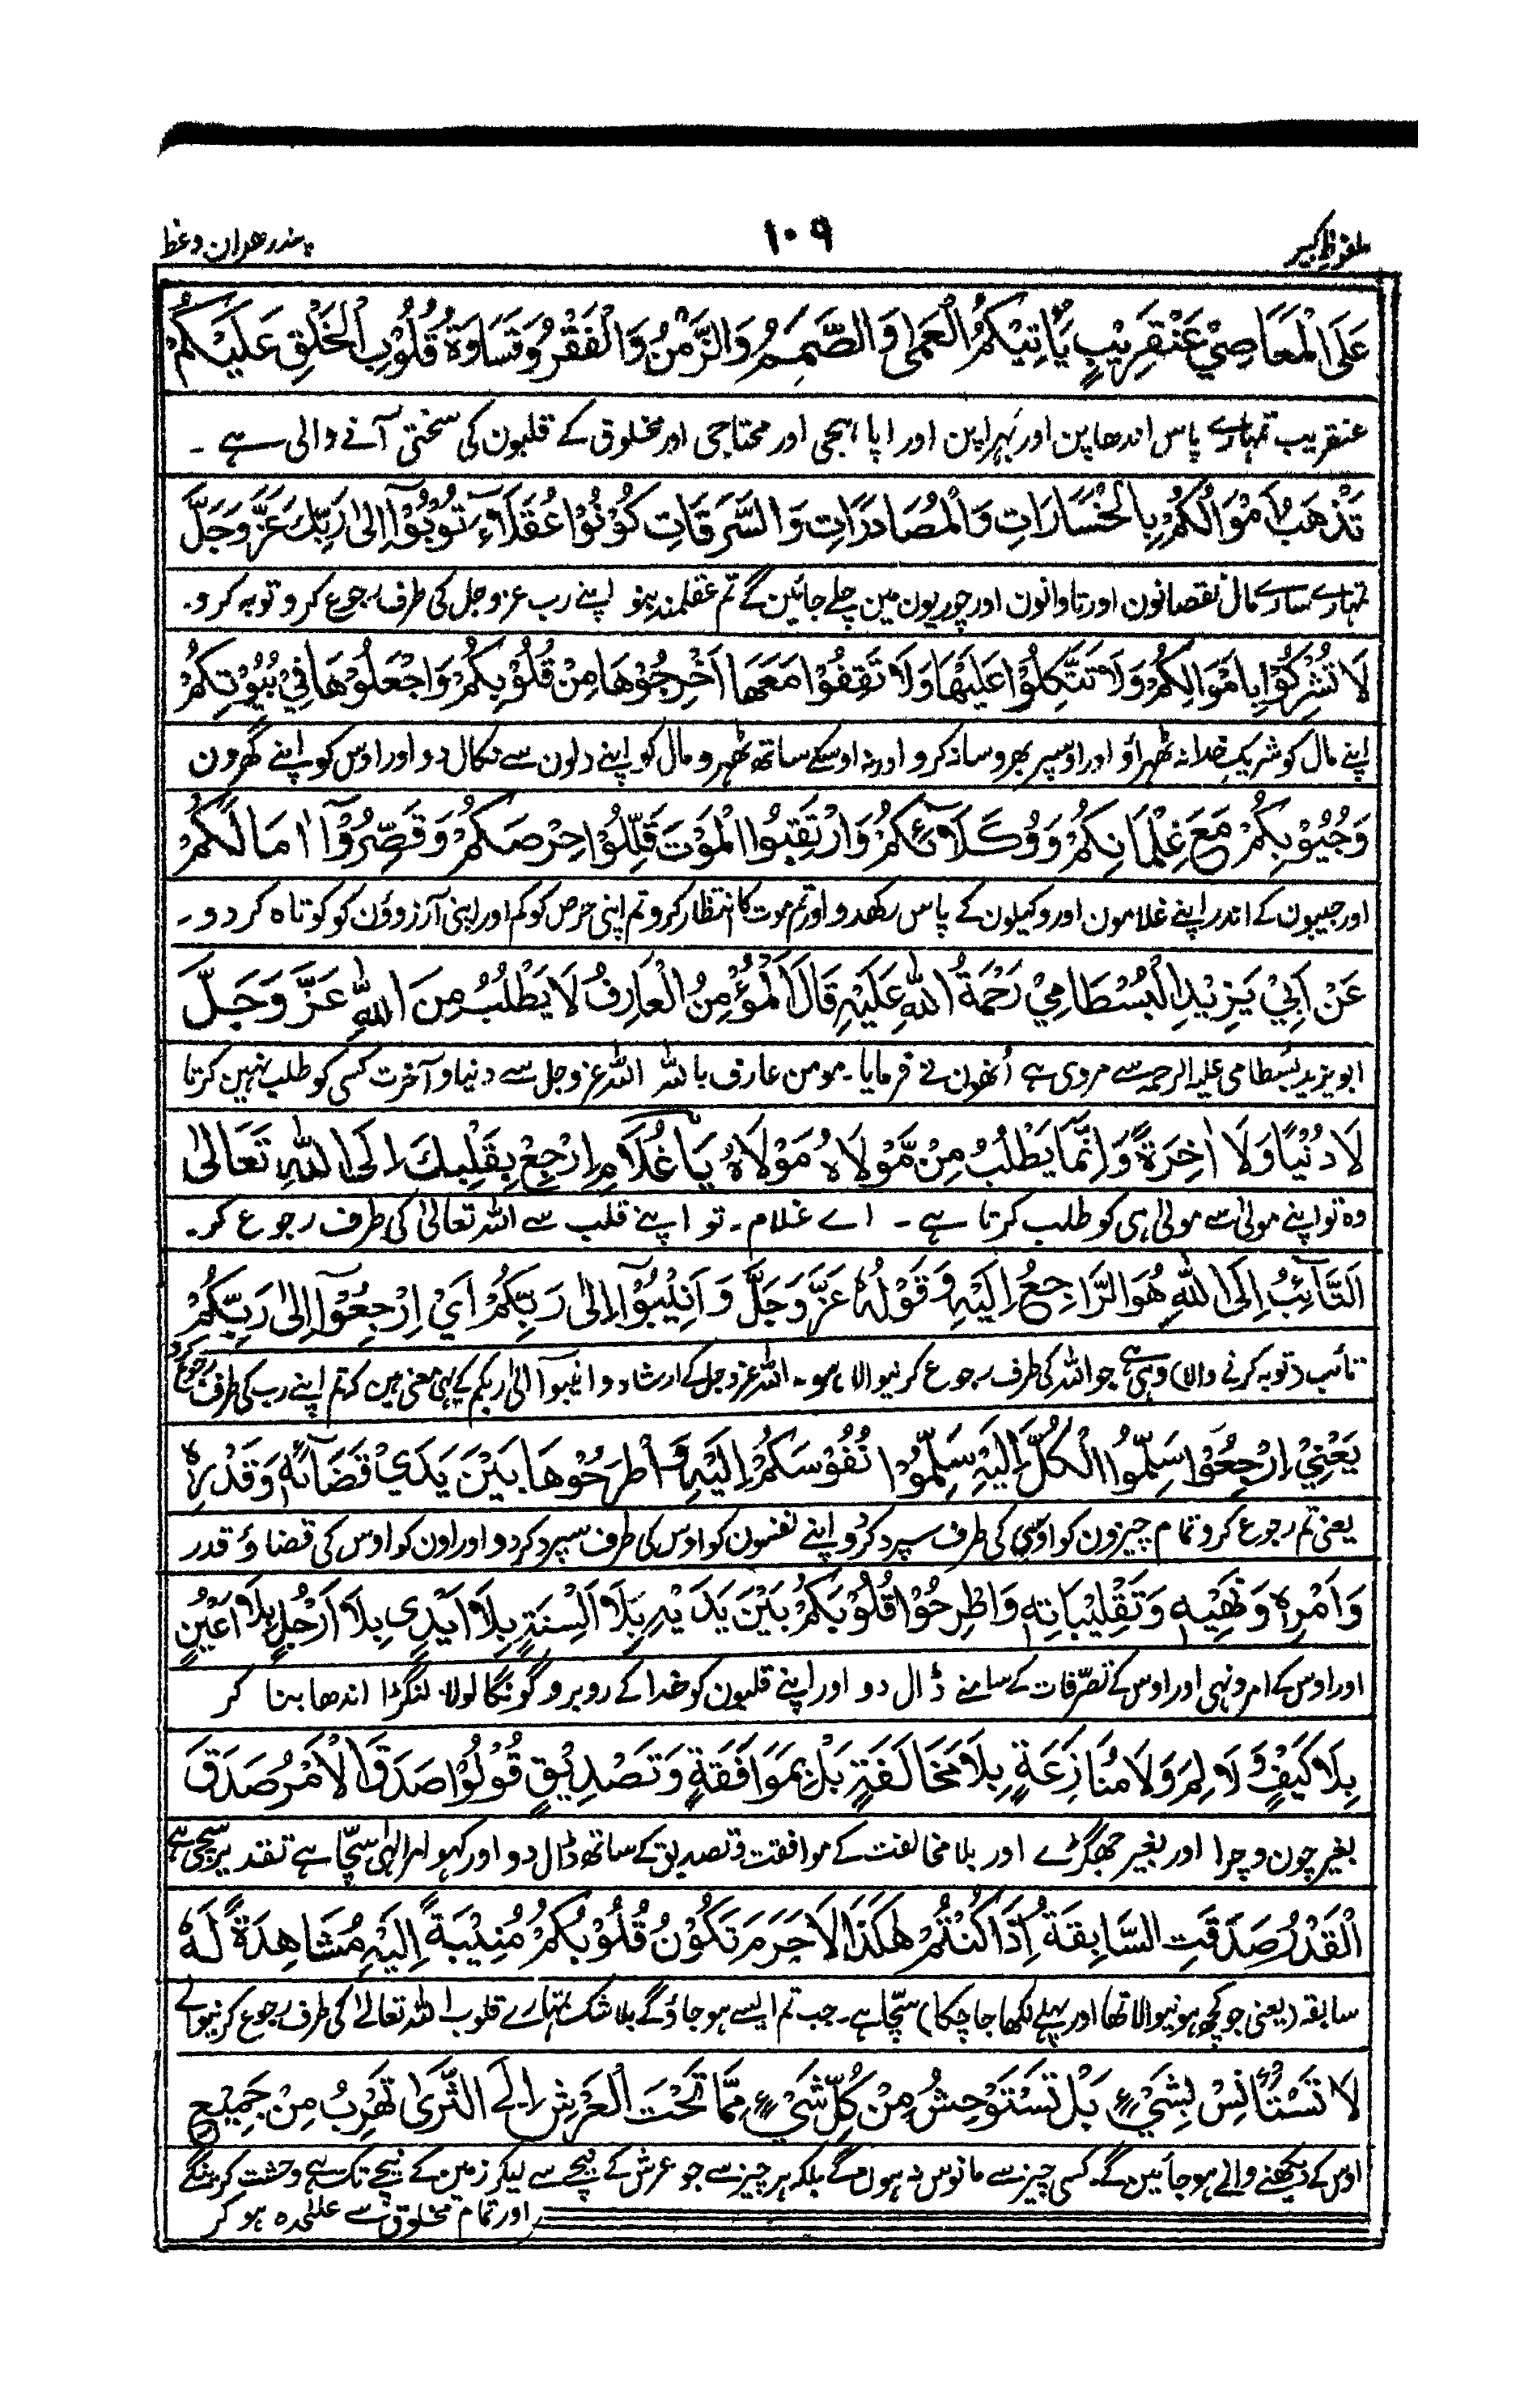 ملفوظِ کبیر
۱۰۹
پندرھوان وعظ
عَلَى الْمَعَاصِيْ عَنْقَرِيْبٍ يَأْتِيْكُمُ الْعَمٰى وَالصَّمَمُ وَالزَّمَنُ وَالْفَقْرُ وَقَسَاوَةُ قُلُوْبِ الْخَلْقِ عَلَيْكُمْ
عنقریب تمہارے پاس اندھاپن اور بہراپن اور اپاہجی اور محتاجی اور مخلوق کے قلبون کی سختی آنے والی ہے ۔
تَذْهَبُ اَمْوَالُكُمْ بِالْخَسَارَاتِ وَالْمُصَادَرَاتِ وَالسَّرَقَاتِ كُوْنُوْا عُقَلَاءَ تُوْبُوْآ اِلٰى رَبِّكَ عَزَّ وَجَلَّ
تمہارے سارے مال نقصانون اور تاوانون اور چوریون مین چلے جائین گے تم عقلمند بنو اپنے رب عزوجل کی طرف رجوع کرو توبہ کرو۔
لَا تُشْرِكُوْا بِاَمْوَالِكُمْ وَلَا تَتَّكِلُوْا عَلَيْهَا وَلَا تَقِفُوْا مَعَهَا اَخْرِجُوْهَا مِنْ قُلُوْبِكُمْ وَاجْعَلُوْهَا فِيْ بُيُوْتِكُمْ
اپنے مال کو شریک خدا نہ ٹھراؤ اور اوسپر بھروسا نہ کرو اور نہ اوسکے ساتھ ٹھہرو مال کو اپنے دلون سے نکال دو اور اوس کو اپنے گھرون
وَجُيُوْبِكُمْ مَعَ غِلْمَانِكُمْ وَوُكَلَآئِكُمْ وَارْتَقِبُوا الْمَوْتَ قَلِّلُوْا حِرْصَكُمْ وَقَصِّرُوْآ اٰمَالَكُمْ
اور جیبون کے اندر اپنے غلامون اور وکیلون کے پاس رکھدو اور تم موت کا انتظار کرو تم اپنی حرص کو کم اور اپنی آرزوؤن کو کوتاہ کر دو۔
عَنْ اَبِيْ يَزِيْدِ الْبُسْطَامِيْ رَحْمَةُ اللّٰهِ عَلَيْهِ قَالَ الْمُؤْمِنُ الْعَارِفُ لَا يَطْلُبُ مِنَ اللّٰهِ عَزَّ وَجَلَّ
ابو یزید بُسطامی علیہ الرحمہ سے مروی ہے اُنھون نے فرمایا۔ مومن عارف باللہ اللہ عزوجل سے دنیا و آخرت کسی کو طلب نہین کرتا
لَا دُنْيًا وَلَا اٰخِرَةً وَاِنَّمَا يَطْلُبُ مِنْ مَّوْلَاهُ مَوْلَاهُ يَا غُلَامِ اِرْجِعْ بِقَلْبِكَ اِلَى اللّٰهِ تَعَالٰى
وہ تو اپنے مولیٰ سے مولیٰ ہی کو طلب کرتا ہے ۔ اے غلام ۔ تو اپنے قلب سے اللہ تعالیٰ کی طرف رجوع کر۔
اَلتَّآئِبُ اِلَى اللّٰهِ هُوَ الرَّاجِعُ اِلَيْهِ وَقَوْلُهٗ عَزَّ وَجَلَّ وَاَنِيْبُوْآ اِلٰى رَبِّكُمْ اَيْ اِرْجِعُوْآ اِلٰى رَبِّكُمْ
تائب (توبہ کرنے والا) وہی ہے جو اللہ کی طرف رجوع کرنیوالا ہو۔ اللہ عزوجل کے ارشاد وانیبوآ الیٰ ربکم کے یہی معنی مین کہ تم اپنے رب کی طرف رجوع کرو
يَعْنِيْ اِرْجِعُوْا سَلِّمُوا الْكُلَّ اِلَيْهِ سَلِّمُوْا نُفُوْسَكُمْ اِلَيْهِ وَاطْرَحُوْهَا بَيْنَ يَدَيْ قَضَآئِهٖ وَقَدْرِهٖ
یعنی تم رجوع کرو تمام چیزون کو اوسی کی طرف سپرد کر دو اپنے نفسون کو اوس کی طرف سپرد کر دو اور اون کو اوس کی قضا وَ قدر
وَاَمْرِهٖ وَنَهْيِهٖ وَتَقْلِيْبَاتِهٖ وَاطْرِحُوْا قُلُوْبَكُمْ بَيْنَ يَدَيْهِ بِلَا اَلْسِنَةٍ بِلَا اَيْدِى بِلَا اَرْجُلٍ بِلَا اَعْيُنٍ
اور اوس کے امر و نہی اور اوس کے تصرّفات کے سامنے ڈال دو اور اپنے قلبون کو خدا کے روبرو گونگا لولا لنگڑا اندھا بنا کر
بِلَا كَيْفٍ وَّلَا لِمَ وَلَا مُنَازَعَةٍ بِلَا مُخَالَفَةٍ بَلْ بِمُوَافَقَةٍ وَتَصْدِيْقٍ قُوْلُوْا صَدَقَ الْاَمْرُ صَدَقَ
بغیر چون و چرا اور بغیر جھگڑے اور بلا مخالفت کے موافقت و تصدیق کے ساتھ ڈال دو اور کہو امر الٰہی سچّا ہے تقدیر سچی ہے
الْقَدْرُ صَدَقَتِ السَّابِقَةُ اِذَا كُنْتُمْ هٰكَذَا لَاجَرَمَ تَكُوْنُ قُلُوْبُكُمْ مُنِيْبَةً اِلَيْهِ مُشَاهِدَةً لَهٗ
سابقہ (یعنی جو کچھ ہونیوالا تھا اور پہلے لکھا جا چکا) سچّا ہے۔ جب تم ایسے ہو جاؤ گے بلاشک تمہارے قلوب اللہ تعالےٰ کی طرف رجوع کرنیوالے
لَا تَسْتَأْنِسْ بِشَيْءٍ بَلْ تَسْتَوْحِشُ مِنْ كُلِّ شَيْءٍ مِمَّا تَحْتَ الْعَرْشِ اِلَى الثَّرٰى تَهْرِبُ مِنْ جَمِيْعِ
اوس کے دیکھنے والے ہو جائین گے۔ کسی چیز سے مانوس نہ ہوں گے بلکہ ہر چیز سے جو عرش کے نیچے سے لیکر زمین کے نیچے تک ہے وحشت کرینگے
اور تمام مخلوق سے علٰحدہ ہو کر